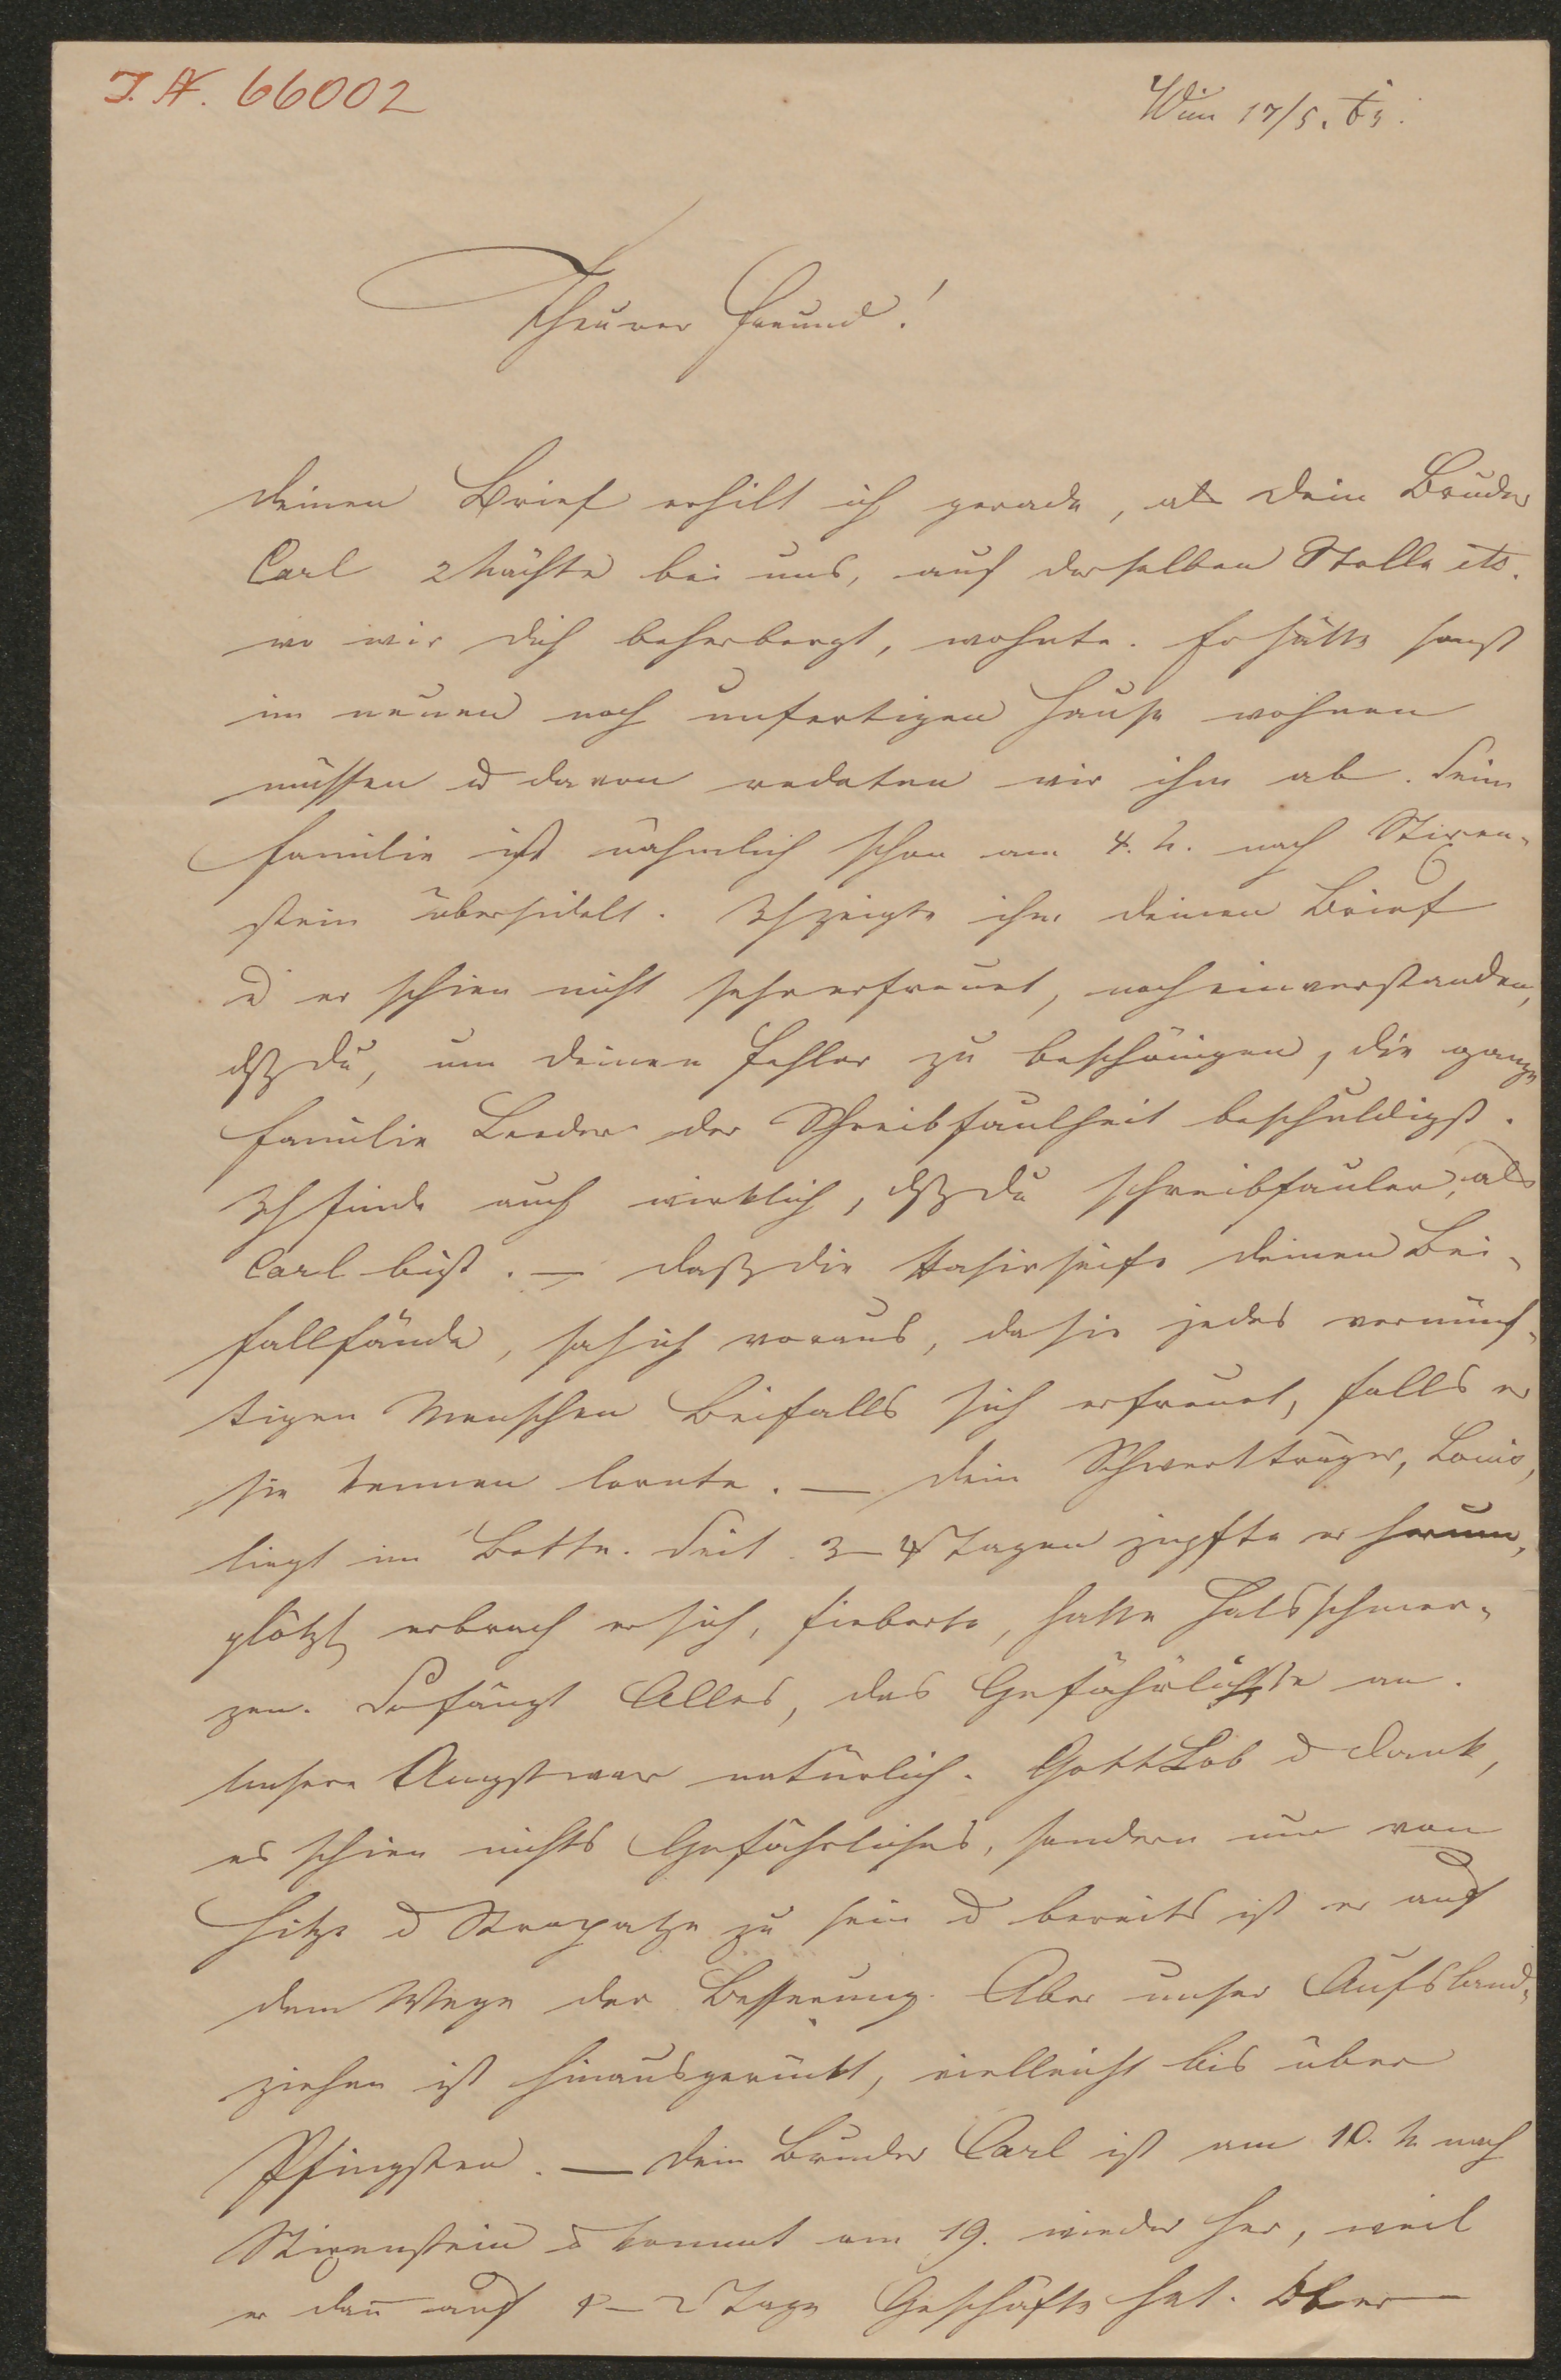 I. N. 66002
Wien 17/5. 65.
Theurer Freund!
Deinen Brief erhilt ich gerade, als Dein Bruder
Carl 2 Nächte bei uns, auf derselben Stelle etc.
wo wir Dich beherbergt, wohnte. Er hätte sonst
im neuen noch unfertigen Hause wohnen
müssen u davon redeten wir ihm ab. Seine
Familie ist nähmlich schon am 4. h. nach Stixen-
stein übersiedelt. Ich zeigte ihm deinen Brief
u er schien nicht sehr erfreuet, noch einverstanden,
dß Du, um deinen Fehler zu beschönigen, die ganze
Familie Leeder der Schreibfaulheit beschuldigst.
Ich finde auch wirklich, dß Du schreibfauler, als
Carl bist. — Daß die Rasirseife deinen Bei-
fall fände, sah ich voraus, da sie jedes vernünf-
tigen Menschen Beifalls sich erfreuet, falls er
sie kennen lernte. — Dein Schwertträger, Louis,
liegt im Bette. Seit 3–4 Tagen hupfte er herum,
plötzl erbrach er sich, fieberte, hatte Halsschmer-
zen. So fängt Alles, das Gefährlichste an.
Unsere Angst war natürlich. Gott Lob u Dank,
es schien nichts Gefährliches, sondern nur von
Hitze u Strapatze zu sein u bereits ist er auf
dem Wege der Besserung. Aber unser Aufsland-
ziehen ist hinausgerückt, vielleicht bis über
Pfingsten. — Dein Bruder Carl ist am 10. h. nach
Stixenstein u kommt am 19. wieder her, weil
er dan̄ auf 1–2 Tage Geschäfte hat. Aber